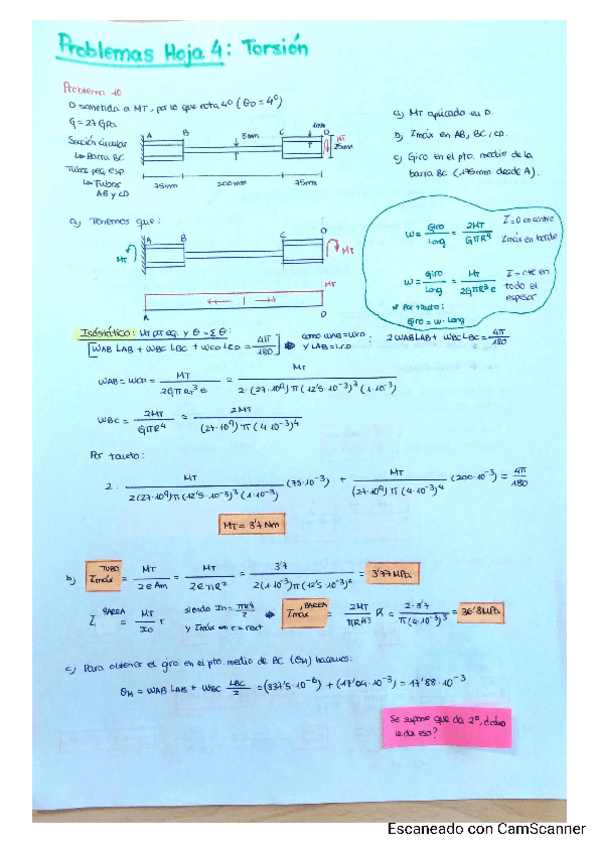 Problemas Hoja 4: Torsión
Problema 10
D sometida a MT, por lo que rota 4º (θD = 4º)
G = 27 GPa
Sección circular
↳ Barra BC
Tubos peq. esp
↳ Tubos AB y CD
A B 8mm C 1mm D MT 25mm
75mm 200mm 75mm
a) MT aplicado en D.
b) Zmáx en AB, BC, CD.
c) Giro en el pto. medio de la
barra BC (175mm desde A).
a) Tenemos que:
MT A B C D MT
MT
A D
W = Giro/Long = 2MT/GπR⁴ Z=0 en centro
Zmáx en borde
W = Giro/Long = MT/2GπR³e Z=cte en todo el espesor
Por tanto:
Giro = W · Long
Isóstático: MT por eq. y θ = Σθi:
[WAB LAB + WBC LBC + WCD LCD = 4π/180] ⇒ como WAB=WCD y LAB=LCD : 2WABLAB + WBCLBC = 4π/180
WAB = WCD = MT/2GπRT³e = MT/2·(27·10⁹)π(12'5·10⁻³)³(1·10⁻³)
WBC = 2MT/GπR⁴ = 2MT/(27·10⁹)·π(4·10⁻³)⁴
Por tanto:
2 · MT/2(27·10⁹)π(12'5·10⁻³)³(1·10⁻³) (75·10⁻³) + MT/(27·10⁹)π(4·10⁻³)⁴ (200·10⁻³) = 4π/180
MT = 3'7 Nm
b) Zmáx TUBO = MT/2eAm = MT/2eπR² = 3'7/2(1·10⁻³)π(12'5·10⁻³)² = 3'77 MPa
Z BARRA = MT/I0 r siendo I0 = πR⁴/2 y Zmáx en r = rext ⇒ Zmáx BARRA = 2MT/πR⁴³ R = 2·3'7/π(4·10⁻³)³ = 36'8 MPa
c) Para obtener el giro en el pto. medio de BC (θM) hacemos:
θM = WAB LAB + WBC LBC/2 = (837'5·10⁻⁶) + (17'04·10⁻³) = 17'88·10⁻³
Se supone que da 2º,
le da eso?
Escaneado con CamScanner